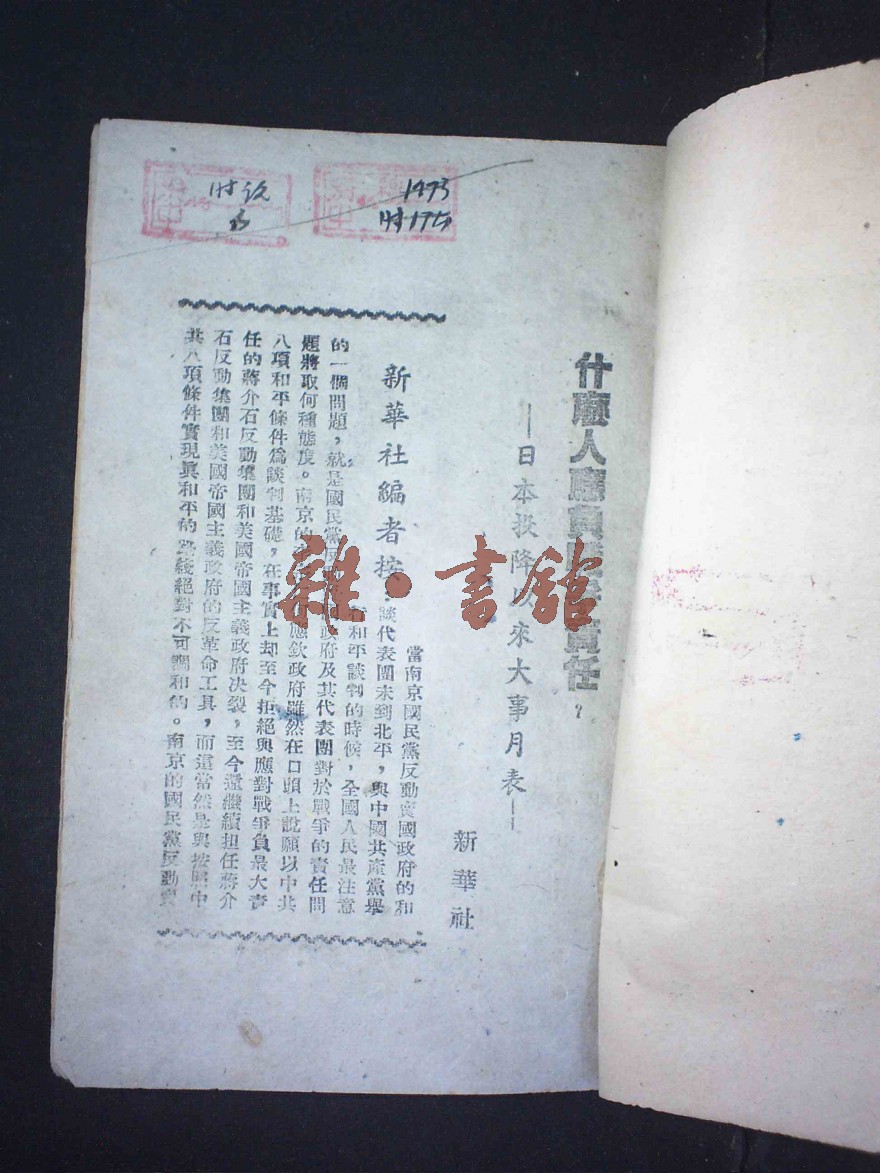 什麽人應負戰爭責任?
—日本投降以來大事月表—
新華社
新華社編者按:
當南京國民黨反動賣國政府的和
談代表團未到北平,與中國共產黨舉
行和平談判的時候,全國人民最注意
的一個問題,就是國民黨反動政府及其代表團對於戰爭的責任問
題將取何種態度。南京的 應欽政府雖然在口頭上說願以中共
八項和平條件爲談判基礎,在事實上却至今拒絕與應對戰爭負最大責
任的蔣介石反動集團和美國帝國主義政府决裂,至今還繼續担任蔣介
石反動集團和美國帝國主義政府的反革命工具,而這當然是與按照中
共八項條件實現眞和平的路綫絕對不可調和的。南京的國民黨反動賣
1473
雜·書館